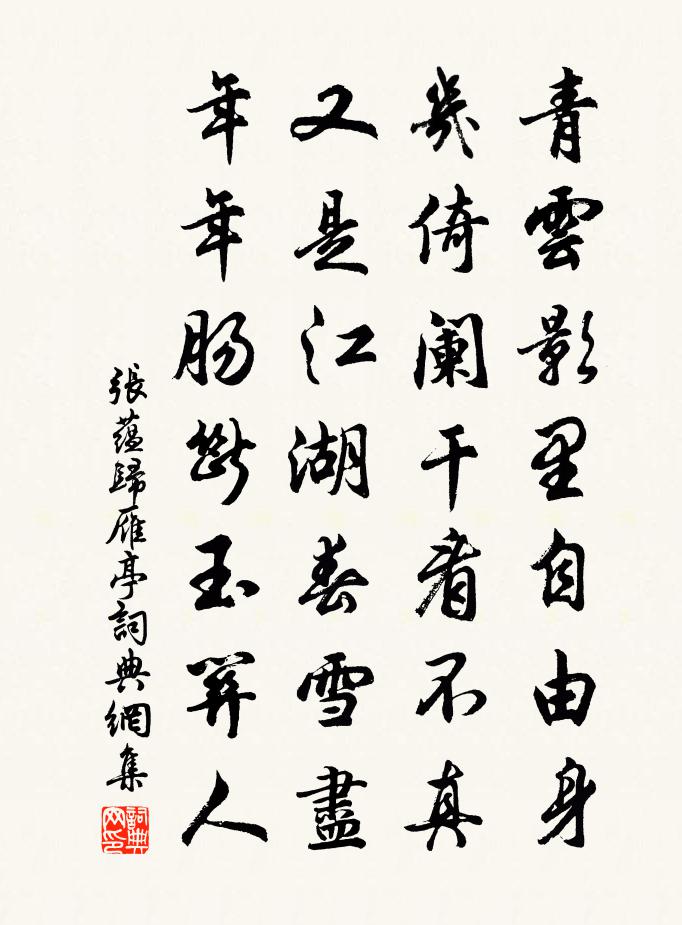 青雲影里自由身
幾倚闌干看不真
又是江湖春雪盡
年年腸斷玉關人
張蘊歸雁亭詞典網集
詞典網印